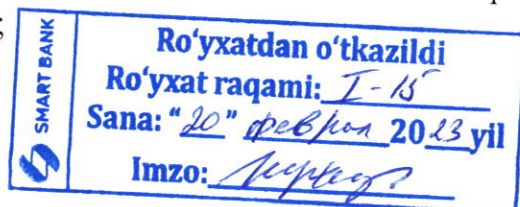 SMART BANK
Ro'yxatdan o'tkazildi
Ro'yxat raqami: I-15
Sana: "20" феврал 2023 yil
Imzo: